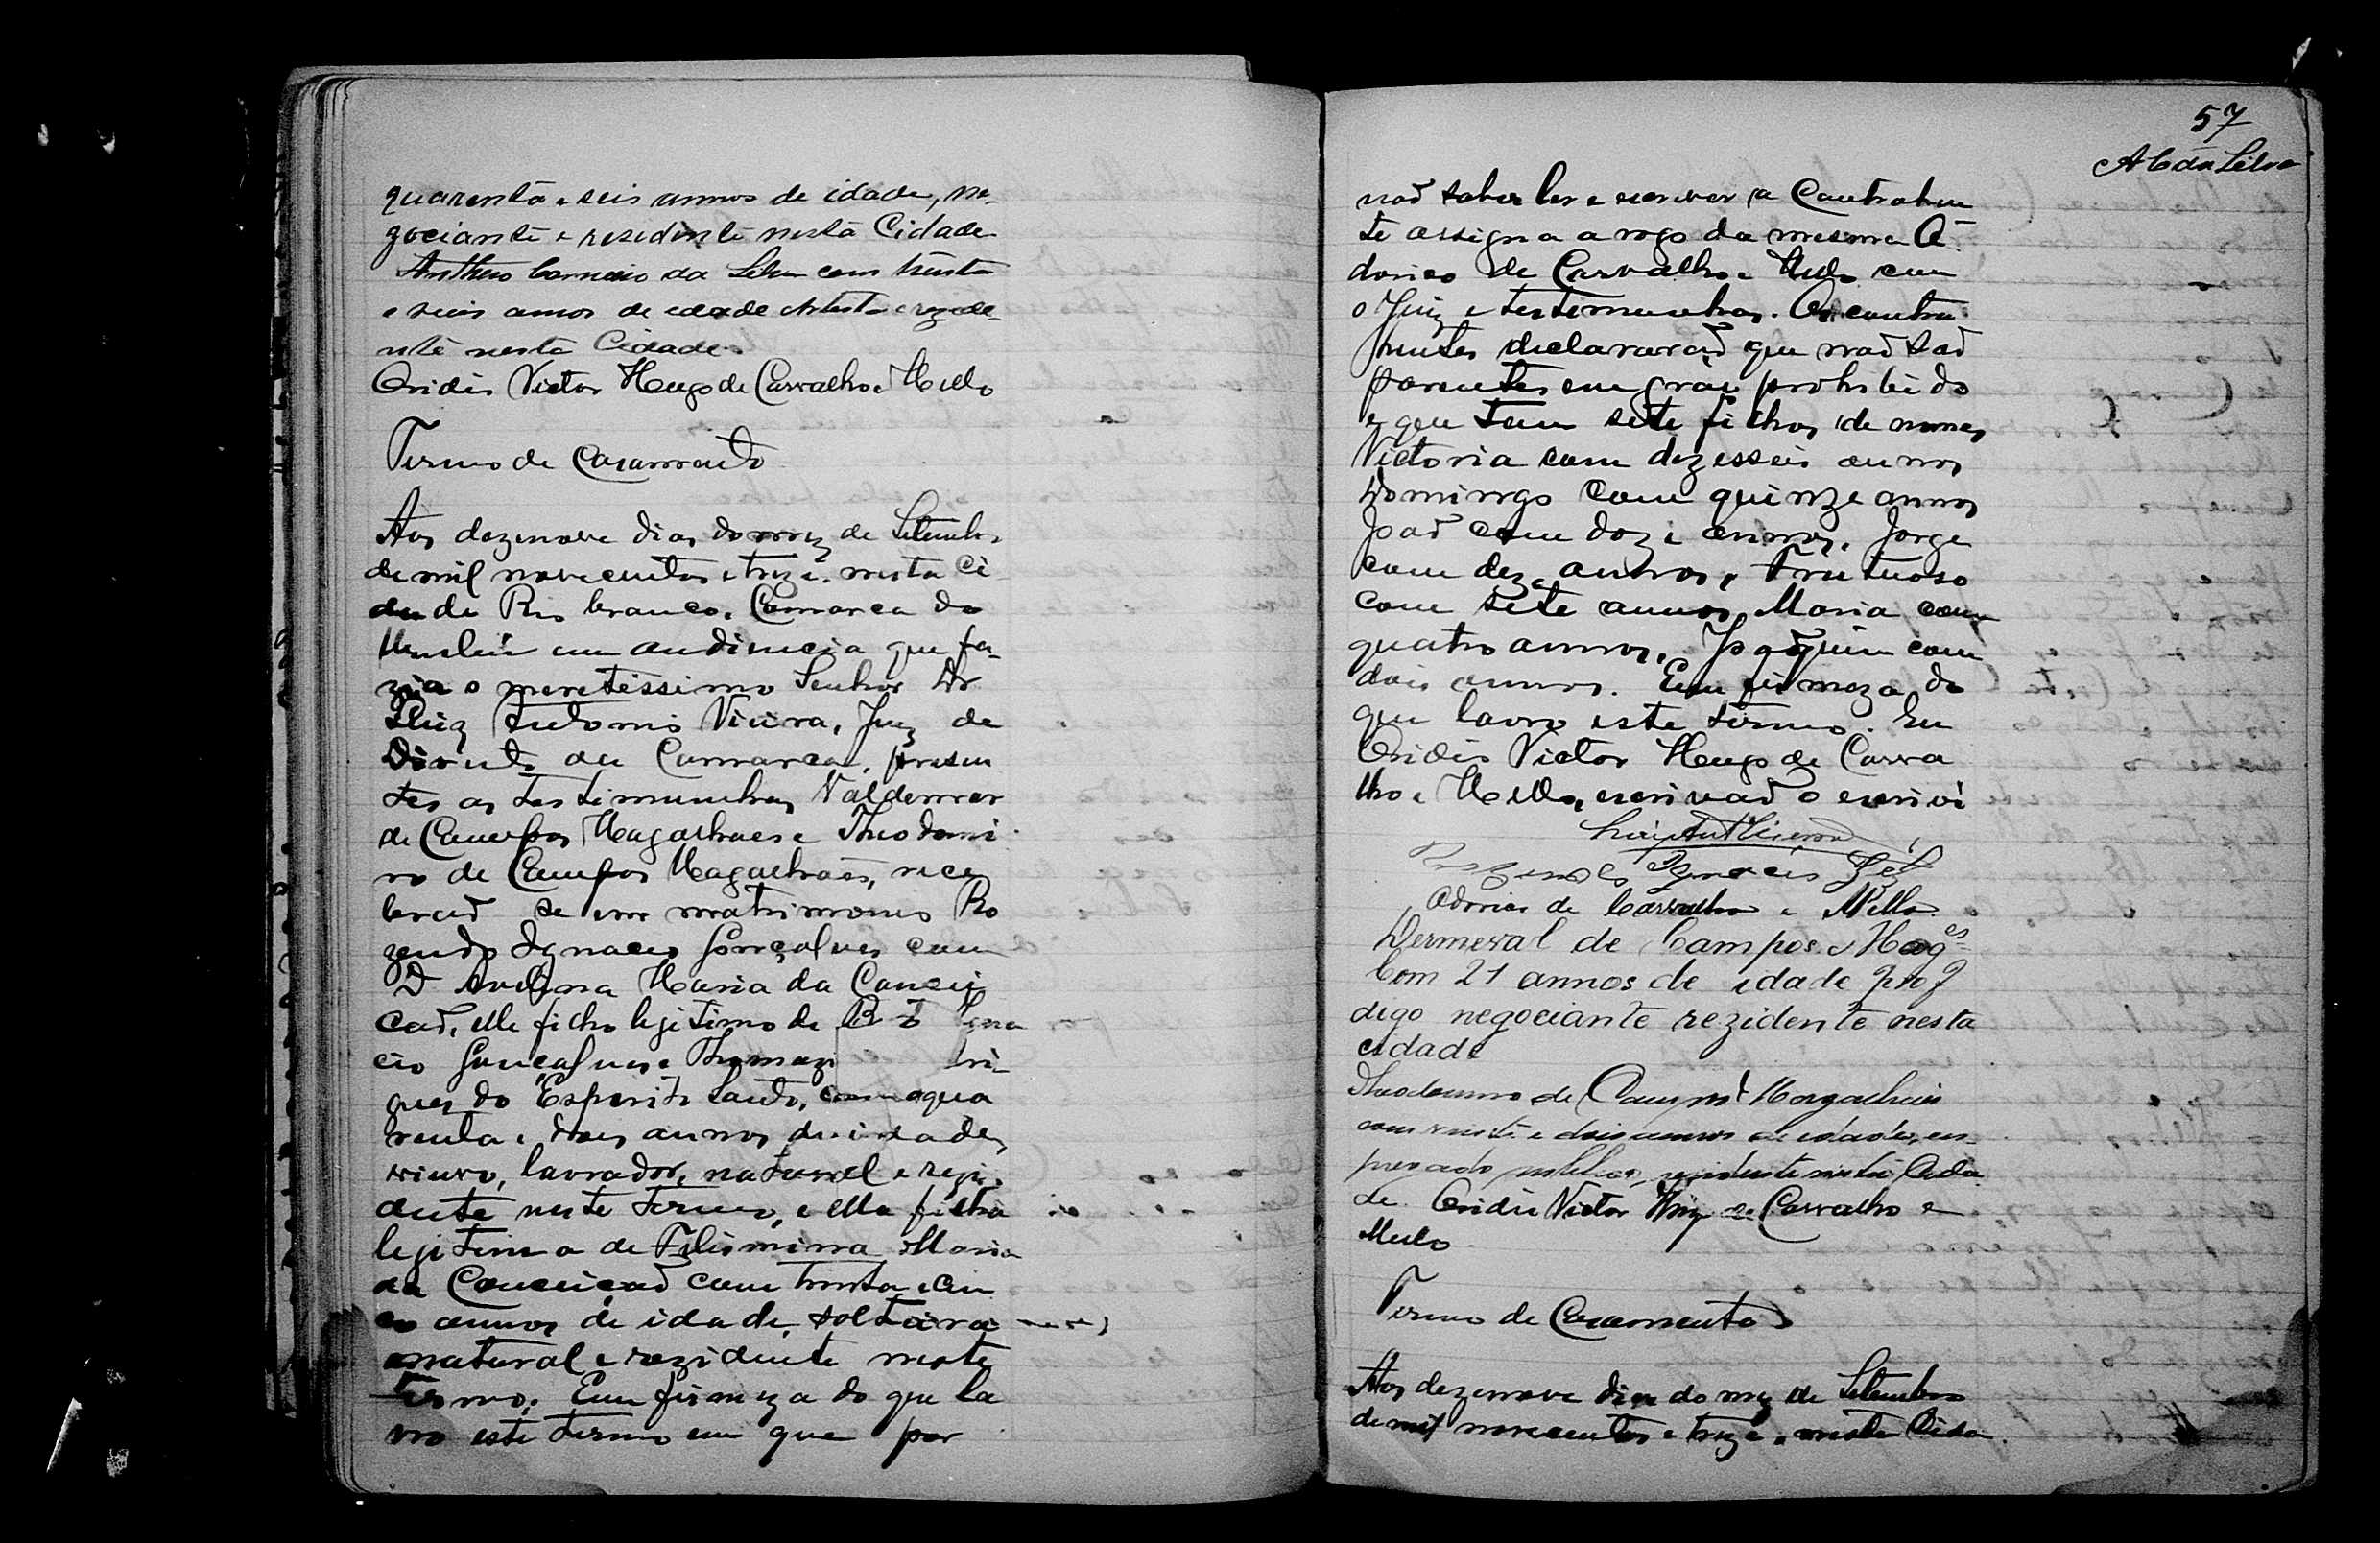 quarenta e seis annos de idade, ne-
gociante e residente nesta Cidade
Anthero Carneiro da Silva com trinta
e seis annos de edade Artista e rezide-
nte nesta Cidade.
Oridis Victor Hugo de Carvalho e Mello
Termo de Casamento
Aos dezenove dias do mez de Setembro
de mil novecentos e treze, nesta Ci
dade Rio branco, Comarca do
em audiencia que fa-
zia o meretissimo Senhor Dr
Luiz Antonio Vieira, Juiz de
Direito da Comarca, presen
tes as testimunhas Valdemar
de Campos Magalhaes e Theodomi
ro de Campos Magalhaes, rece
beraõ se em matrimonio Ro
zendo Ignacio Gonçalves com
D Avelina Maria da Concei
çaõ, elle filho legitimo de
cio Gonçalves e Thomazi
ques do Espirito Santo, com qua
renta e dois annos de idade,
viuvo, lavrador, natural e rezi-
dente neste termo, e ella filha
legitima de Filismina Maria
da Conceiçaõ com trinta e cin
co annos de idade, solteira
natural e rezidente neste
termo. Em firmeza do que la
vro este termo em que por
57
A C da Silva
naõ saber ler e escrever a Contrahen
te assigna a rogo da mesma A
donias de Carvalho e Mello com
o Juiz e testemunhas. Os contra-
hentes declararaõ que naõ saõ
parentes em grau prohibido
e que tem sete filhos de nomes
Victoria com dezesseis annos
Domingo com quinze annos
Joaõ com doze annos, Jorge
com dez annos, Frutuoso
com sete annos, Maria com
quatro annos, Joaquim com
dois annos. Em firmeza do
que lavro este termo. Eu
Oridis Victor Hugo de Carva
lho e Mello, escrivaõ o escrivi
Luiz Ant Vieira
Rozendo Ignacio
Adonias de Carvalho e Mello
Dermeval de Campos Mag.es
Com 21 annos de idade
digo negociante rezidente nesta
cidade
Theodomiro de Campos Magalhães
com vinte e dois annos de idade, em-
pregado publico, residente nesta Cida
de. Oridis Victor Hugo de Carvalho e
Mello
Termo de Casamento
Aos dezenove dias do mez de Setembro
de mil novecentos e treze, nesta Cida